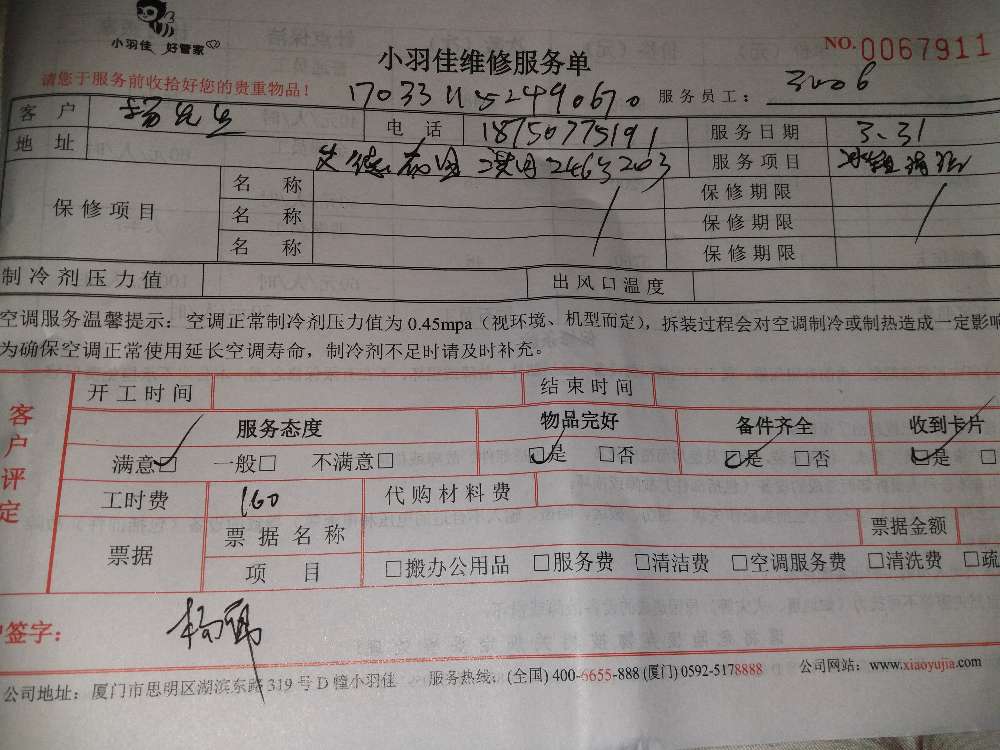 小羽佳 好管家
小羽佳维修服务单
NO. 0067911
请您于服务前收拾好您的贵重物品！
170331152490670
服务员工： 3006
客户 杨先生 电话 18750775191 服务日期 3.31
地址 2463203 服务项目 冰箱清洗
保修项目 名称 保修期限
名称 保修期限
名称 保修期限
制冷剂压力值 出风口温度
空调服务温馨提示：空调正常制冷剂压力值为0.45mpa（视环境、机型而定），拆装过程会对空调制冷或制热造成一定影响
为确保空调正常使用延长空调寿命，制冷剂不足时请及时补充。
客户评定
开工时间 结束时间
服务态度 物品完好 备件齐全 收到卡片
满意☑ 一般□ 不满意□ ☑是 □否 ☑是 □否 ☑是 □
工时费 160 代购材料费
票据 票据名称 票据金额
项目 □搬办公用品 □服务费 □清洁费 □空调服务费 □清洗费 □疏
户签字：
公司地址：厦门市思明区湖滨东路319号D幢小羽佳 服务热线：(全国) 400-6655-888 (厦门) 0592-5178888 公司网站：www.xiaoyujia.com